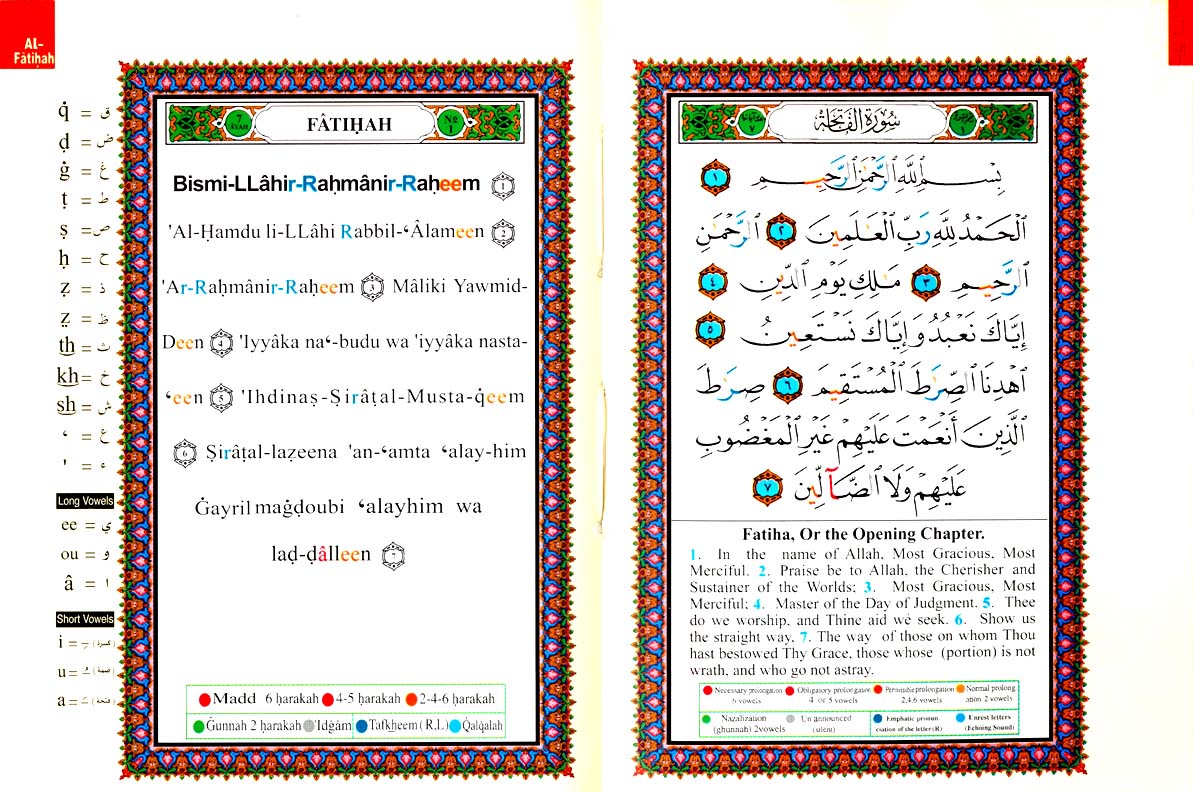 AL-
Fâtiḥah
q̇ = ق
ḍ = ض
ġ = غ
ṭ = ط
ṣ = ص
ḥ = ح
ẓ = ذ
ẓ̤ = ظ
th = ث
kh = خ
sh = ش
‘ = ع
' = ء
Long Vowels
ee = ي
ou = و
â = ا
Short Vowels
i = (كسرة)
u = (ضمة)
a = (فتحة)
7
ÂYAH
FÂTIḤAH
№
1
Bismi-LLâhir-Raḥmânir-Raḥeem 1
'Al-Ḥamdu li-LLâhi Rabbil-‘Âlameen 2
'Ar-Raḥmânir-Raḥeem 3 Mâliki Yawmid-
Deen 4 'Iyyâka na‘-budu wa 'iyyâka nasta-
‘een 5 'Ihdinaṣ-Ṣirâṭal-Musta-q̇eem
6 Ṣirâṭal-laẓeena 'an-‘amta ‘alay-him
Ġayril maġḍoubi ‘alayhim wa
laḍ-ḍâlleen 7
Madd 6 ḥarakah 4-5 ḥarakah 2-4-6 ḥarakah
Ġunnah 2 ḥarakah Idġâm Tafkheem (R.L) Qalqalah
سُورَةُ الْفَاتِحَةِ
بِسْمِ ٱللَّهِ ٱلرَّحْمَٰنِ ٱلرَّحِيمِ ١
ٱلْحَمْدُ لِلَّهِ رَبِّ ٱلْعَٰلَمِينَ ٢ ٱلرَّحْمَٰنِ
ٱلرَّحِيمِ ٣ مَٰلِكِ يَوْمِ ٱلدِّينِ ٤
إِيَّاكَ نَعْبُدُ وَإِيَّاكَ نَسْتَعِينُ ٥
ٱهْدِنَا ٱلصِّرَٰطَ ٱلْمُسْتَقِيمَ ٦ صِرَٰطَ
ٱلَّذِينَ أَنْعَمْتَ عَلَيْهِمْ غَيْرِ ٱلْمَغْضُوبِ
عَلَيْهِمْ وَلَا ٱلضَّآلِّينَ ٧
Fatiha, Or the Opening Chapter.
1. In the name of Allah, Most Gracious, Most
Merciful. 2. Praise be to Allah, the Cherisher and
Sustainer of the Worlds; 3. Most Gracious, Most
Merciful; 4. Master of the Day of Judgment. 5. Thee
do we worship, and Thine aid we seek. 6. Show us
the straight way, 7. The way of those on whom Thou
hast bestowed Thy Grace, those whose (portion) is not
wrath, and who go not astray.
Necessary prolongation 6 vowels
Obligatory prolongation 4 or 5 vowels
Permissible prolongation 2,4,6 vowels
Normal prolongation 2 vowels
Nazalization (ghunnah) 2vowels
Un announced (silent)
Emphatic pronunciation of the letter (R)
Unrest letters (Echoing Sound)